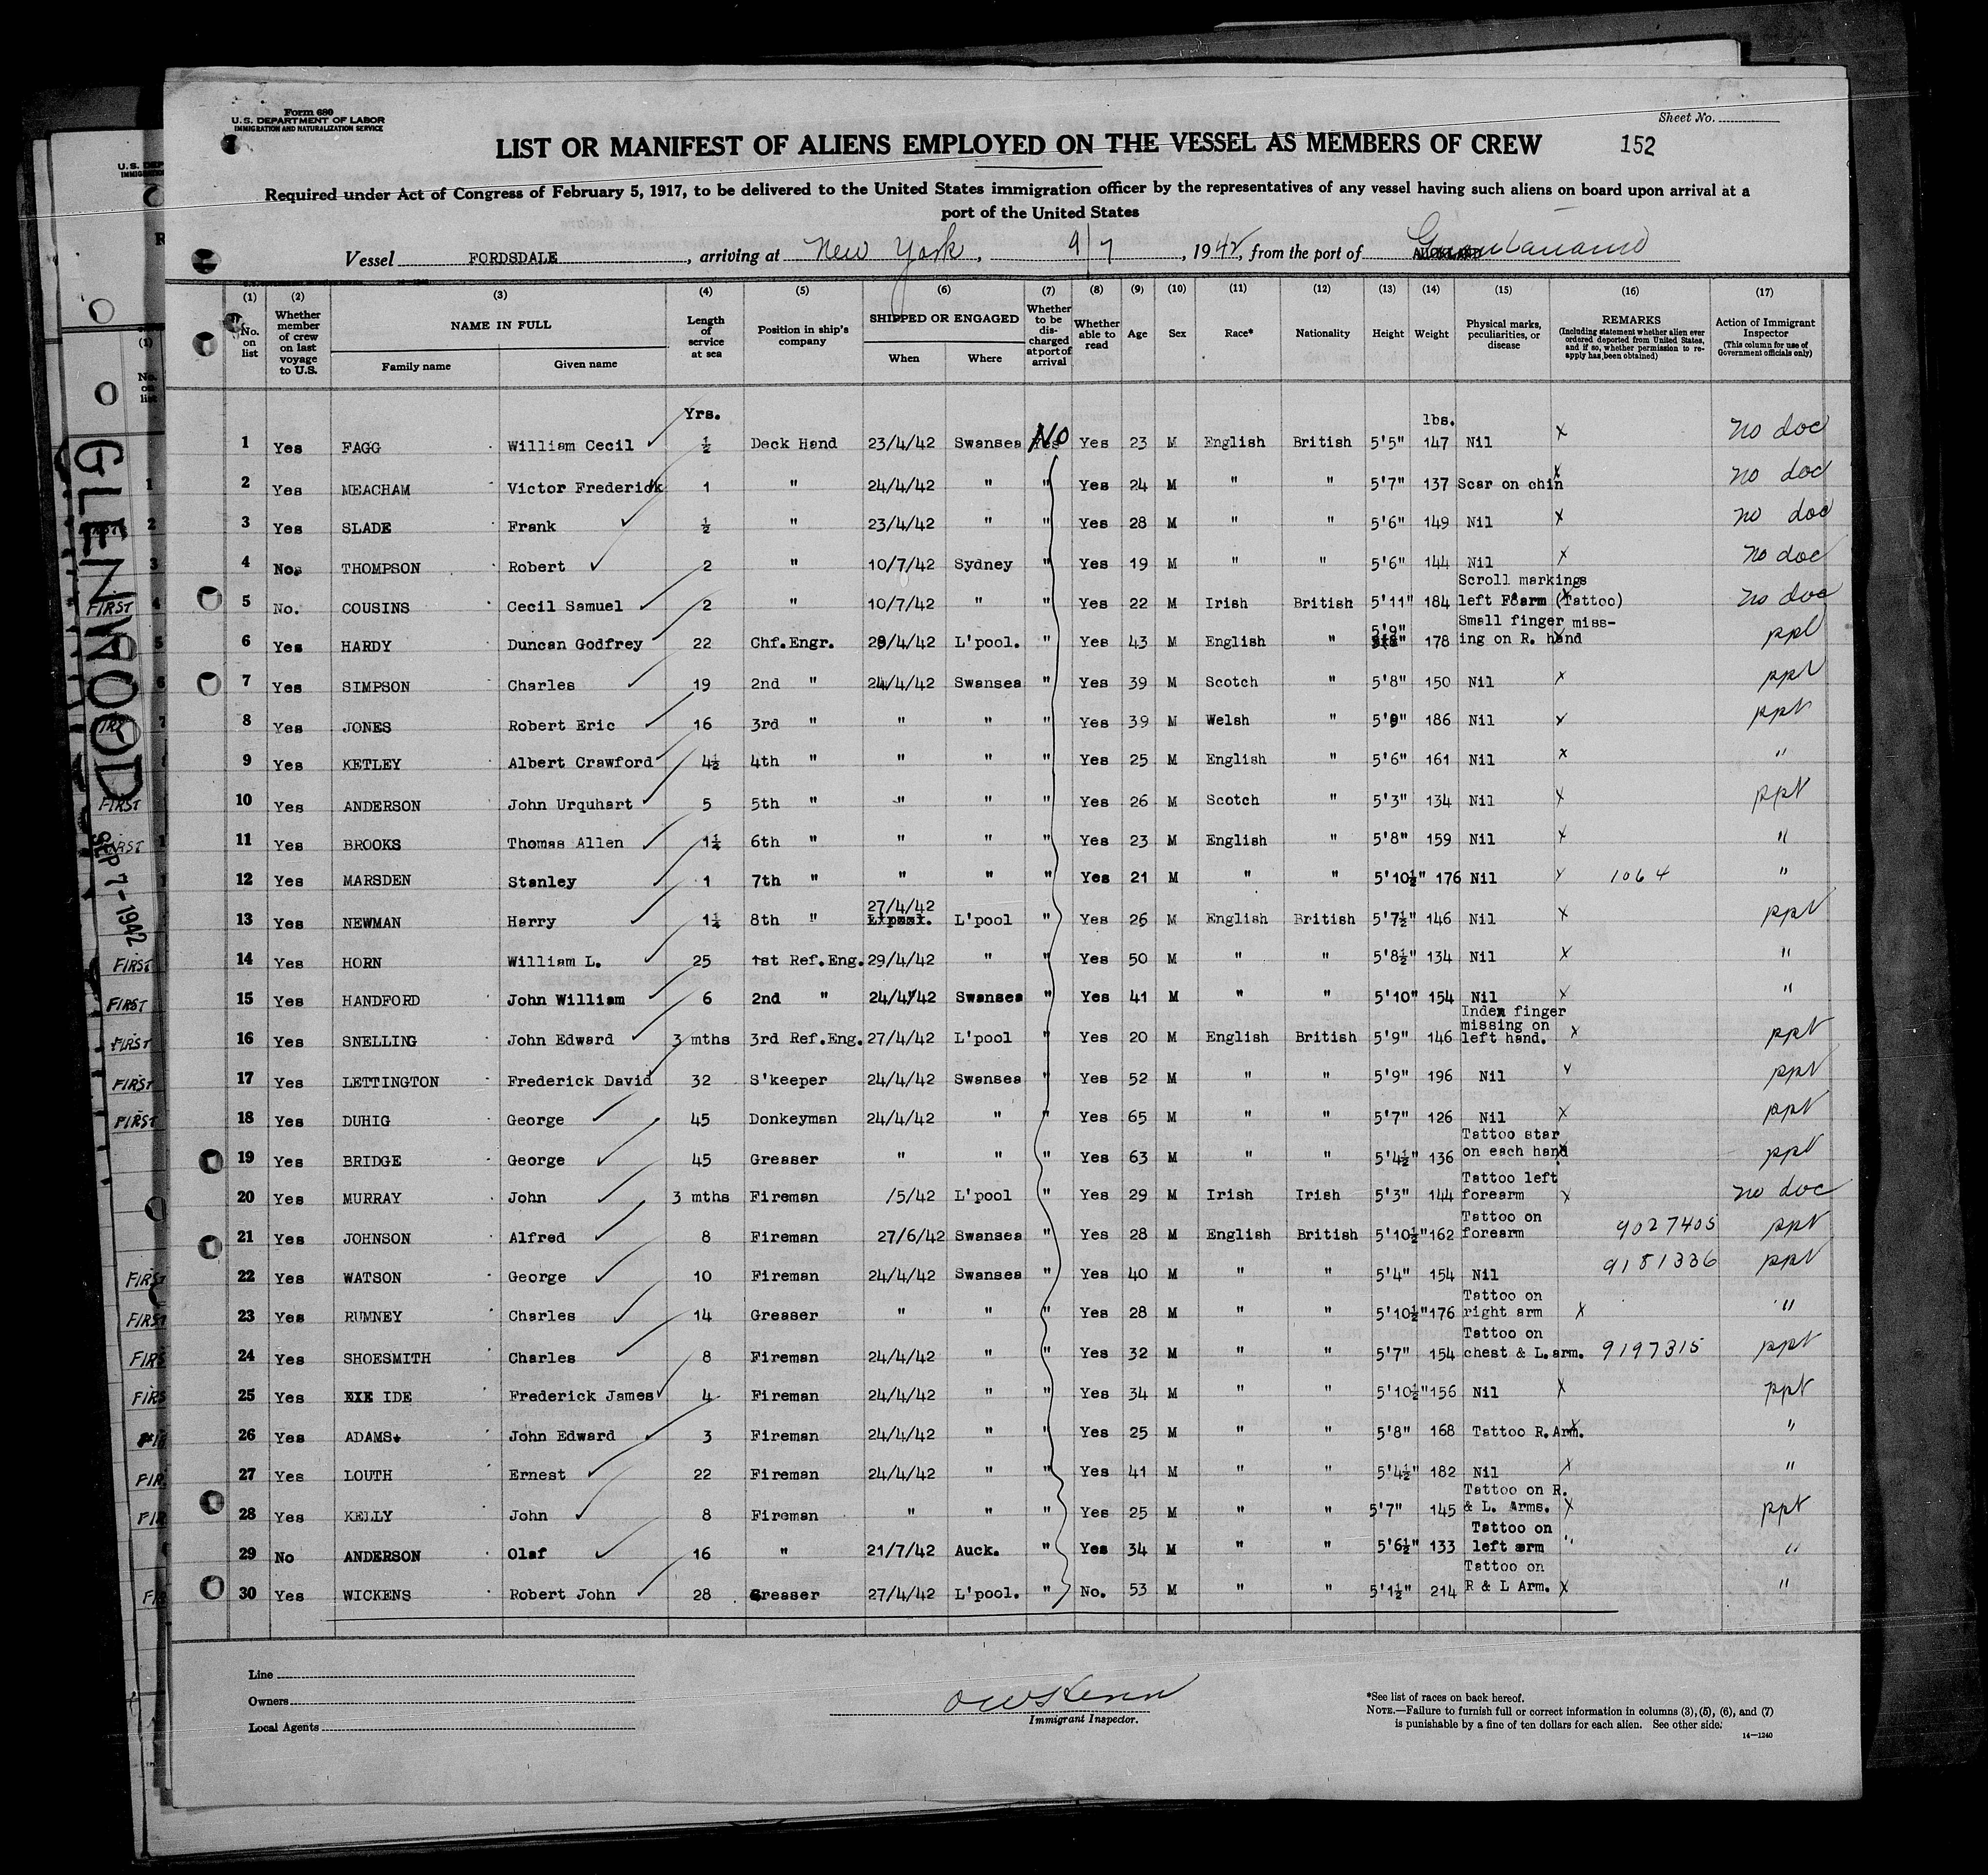 Form 680
U.S. DEPARTMENT OF LABOR
IMMIGRATION AND NATURALIZATION SERVICE
Sheet No.
LIST OR MANIFEST OF ALIENS EMPLOYED ON THE VESSEL AS MEMBERS OF CREW 152
Required under Act of Congress of February 5, 1917, to be delivered to the United States immigration officer by the representatives of any vessel having such aliens on board upon arrival at a
port of the United States
Vessel FORDSDALE, arriving at New York, 9/7, 1942, from the port of Guantanamo
(1) No. on list (2) Whether member of crew on last voyage to U.S. (3) NAME IN FULL Family name Given name (4) Length of service at sea (5) Position in ship's company (6) SHIPPED OR ENGAGED When Where (7) Whether to be discharged at port of arrival (8) Whether able to read (9) Age (10) Sex (11) Race* (12) Nationality (13) Height (14) Weight (15) Physical marks, peculiarities, or disease (16) REMARKS (Including statement whether alien ever ordered deported from United States, and if so, whether permission to re-apply has been obtained) (17) Action of Immigrant Inspector (This column for use of Government officials only)
Yrs. lbs.
1 Yes FAGG William Cecil ✓ ½ Deck Hand 23/4/42 Swansea No Yes 23 M English British 5'5" 147 Nil x no doc
2 Yes MEACHAM Victor Frederick 1 " 24/4/42 " " Yes 24 M " " 5'7" 137 Scar on chin x no doc
3 Yes SLADE Frank ✓ ½ " 23/4/42 " " Yes 28 M " " 5'6" 149 Nil x no doc
4 No. THOMPSON Robert ✓ 2 " 10/7/42 Sydney " Yes 19 M " " 5'6" 144 Nil x no doc
5 No. COUSINS Cecil Samuel ✓ 2 " 10/7/42 " " Yes 22 M Irish British 5'11" 184 Scroll markings left F'arm (Tattoo) x no doc
6 Yes HARDY Duncan Godfrey ✓ 22 Chf.Engr. 28/4/42 L'pool. " Yes 43 M English " 5'9" 178 Small finger missing on R. hand x ppt
7 Yes SIMPSON Charles ✓ 19 2nd " 24/4/42 Swansea " Yes 39 M Scotch " 5'8" 150 Nil x ppt
8 Yes JONES Robert Eric ✓ 16 3rd " " " " Yes 39 M Welsh " 5'9" 186 Nil x ppt
9 Yes KETLEY Albert Crawford ✓ 4½ 4th " " " " Yes 25 M English " 5'6" 161 Nil x "
10 Yes ANDERSON John Urquhart ✓ 5 5th " " " " Yes 26 M Scotch " 5'3" 134 Nil x ppt
11 Yes BROOKS Thomas Allen ✓ 1¼ 6th " " " " Yes 23 M English " 5'8" 159 Nil x "
12 Yes MARSDEN Stanley ✓ 1 7th " " " " Yes 21 M " " 5'10½" 176 Nil x 1064 "
13 Yes NEWMAN Harry ✓ 1¼ 8th " 27/4/42 L'pool " Yes 26 M English British 5'7½" 146 Nil x ppt
14 Yes HORN William L. ✓ 25 1st Ref.Eng. 29/4/42 " " Yes 50 M " " 5'8½" 134 Nil x "
15 Yes HANDFORD John William ✓ 6 2nd " 24/4/42 Swansea " Yes 41 M " " 5'10" 154 Nil x "
16 Yes SNELLING John Edward ✓ 3 mths 3rd Ref.Eng. 27/4/42 L'pool " Yes 20 M English British 5'9" 146 Index finger missing on left hand. x ppt
17 Yes LETTINGTON Frederick David ✓ 32 S'keeper 24/4/42 Swansea " Yes 52 M " " 5'9" 196 Nil x ppt
18 Yes DUHIG George ✓ 45 Donkeyman 24/4/42 " " Yes 65 M " " 5'7" 126 Nil x ppt
19 Yes BRIDGE George ✓ 45 Greaser " " " Yes 63 M " " 5'4½" 136 Tattoo star on each hand x ppt
20 Yes MURRAY John ✓ 3 mths Fireman /5/42 L'pool " Yes 29 M Irish Irish 5'3" 144 Tattoo left forearm x no doc
21 Yes JOHNSON Alfred ✓ 8 Fireman 27/6/42 Swansea " Yes 28 M English British 5'10½" 162 Tattoo on forearm 9027405 ppt
22 Yes WATSON George ✓ 10 Fireman 24/4/42 Swansea " Yes 40 M " " 5'4" 154 Nil 9181336 ppt
23 Yes RUMNEY Charles ✓ 14 Greaser " " " Yes 28 M " " 5'10½" 176 Tattoo on right arm x "
24 Yes SHOESMITH Charles ✓ 8 Fireman 24/4/42 " " Yes 32 M " " 5'7" 154 Tattoo on chest & L.arm. 9197315 ppt
25 Yes EXE IDE Frederick James ✓ 4 Fireman 24/4/42 " " Yes 34 M " " 5'10½" 156 Nil x ppt
26 Yes ADAMS John Edward ✓ 3 Fireman 24/4/42 " " Yes 25 M " " 5'8" 168 Tattoo R.Arm. x "
27 Yes LOUTH Ernest ✓ 22 Fireman 24/4/42 " " Yes 41 M " " 5'4½" 182 Nil x "
28 Yes KELLY John ✓ 8 Fireman " " " Yes 25 M " " 5'7" 145 Tattoo on R. & L. Arms. x ppt
29 No ANDERSON Olaf ✓ 16 " 21/7/42 Auck. " Yes 34 M " " 5'6½" 133 Tattoo on left arm " "
30 Yes WICKENS Robert John ✓ 28 Greaser 27/4/42 L'pool. " No. 53 M " " 5'1½" 214 Tattoo on R & L Arm. x "
Line
Owners
Local Agents
Immigrant Inspector.
*See list of races on back hereof.
NOTE.—Failure to furnish full or correct information in columns (3), (5), (6), and (7)
is punishable by a fine of ten dollars for each alien. See other side.
14—1240
GLENWOOD
SEP 7-1942
FIRST